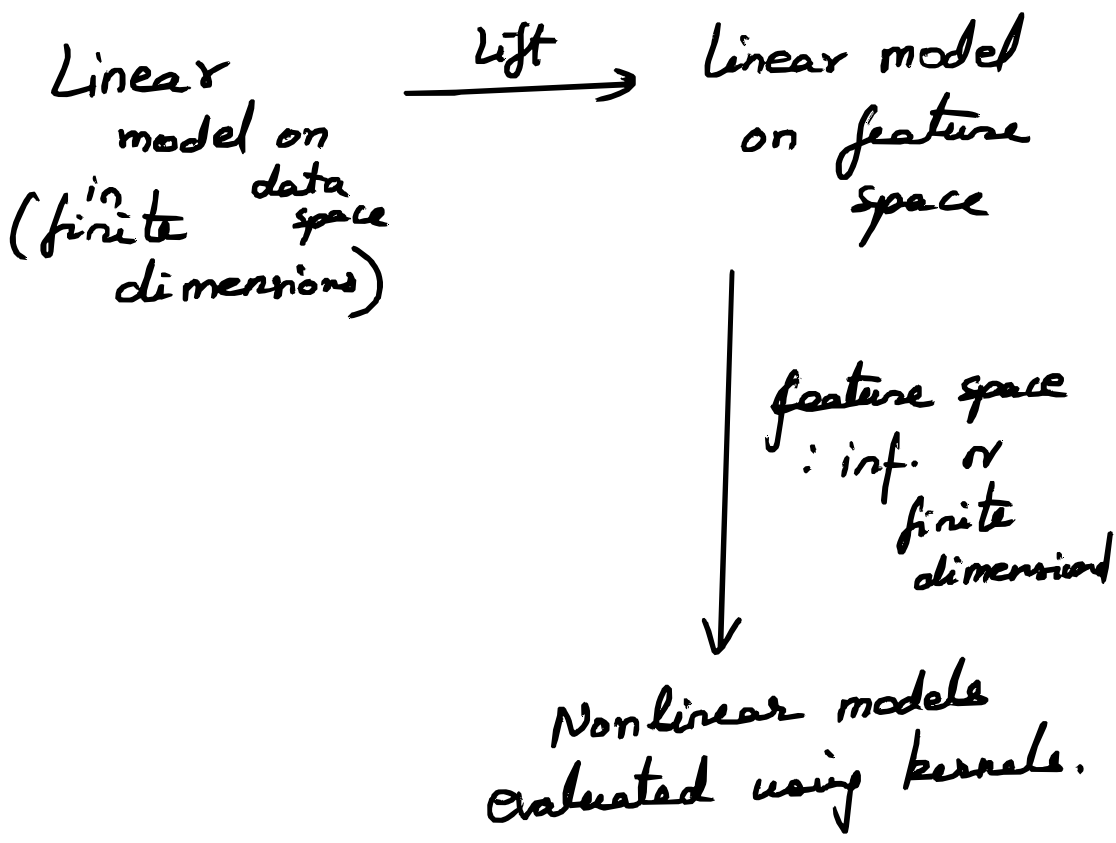 Linear
model on
data
space
(in finite
dimensions)
Lift
Linear model
on feature
space
feature space
: inf. or
finite
dimensional
Nonlinear models
evaluated using kernels.